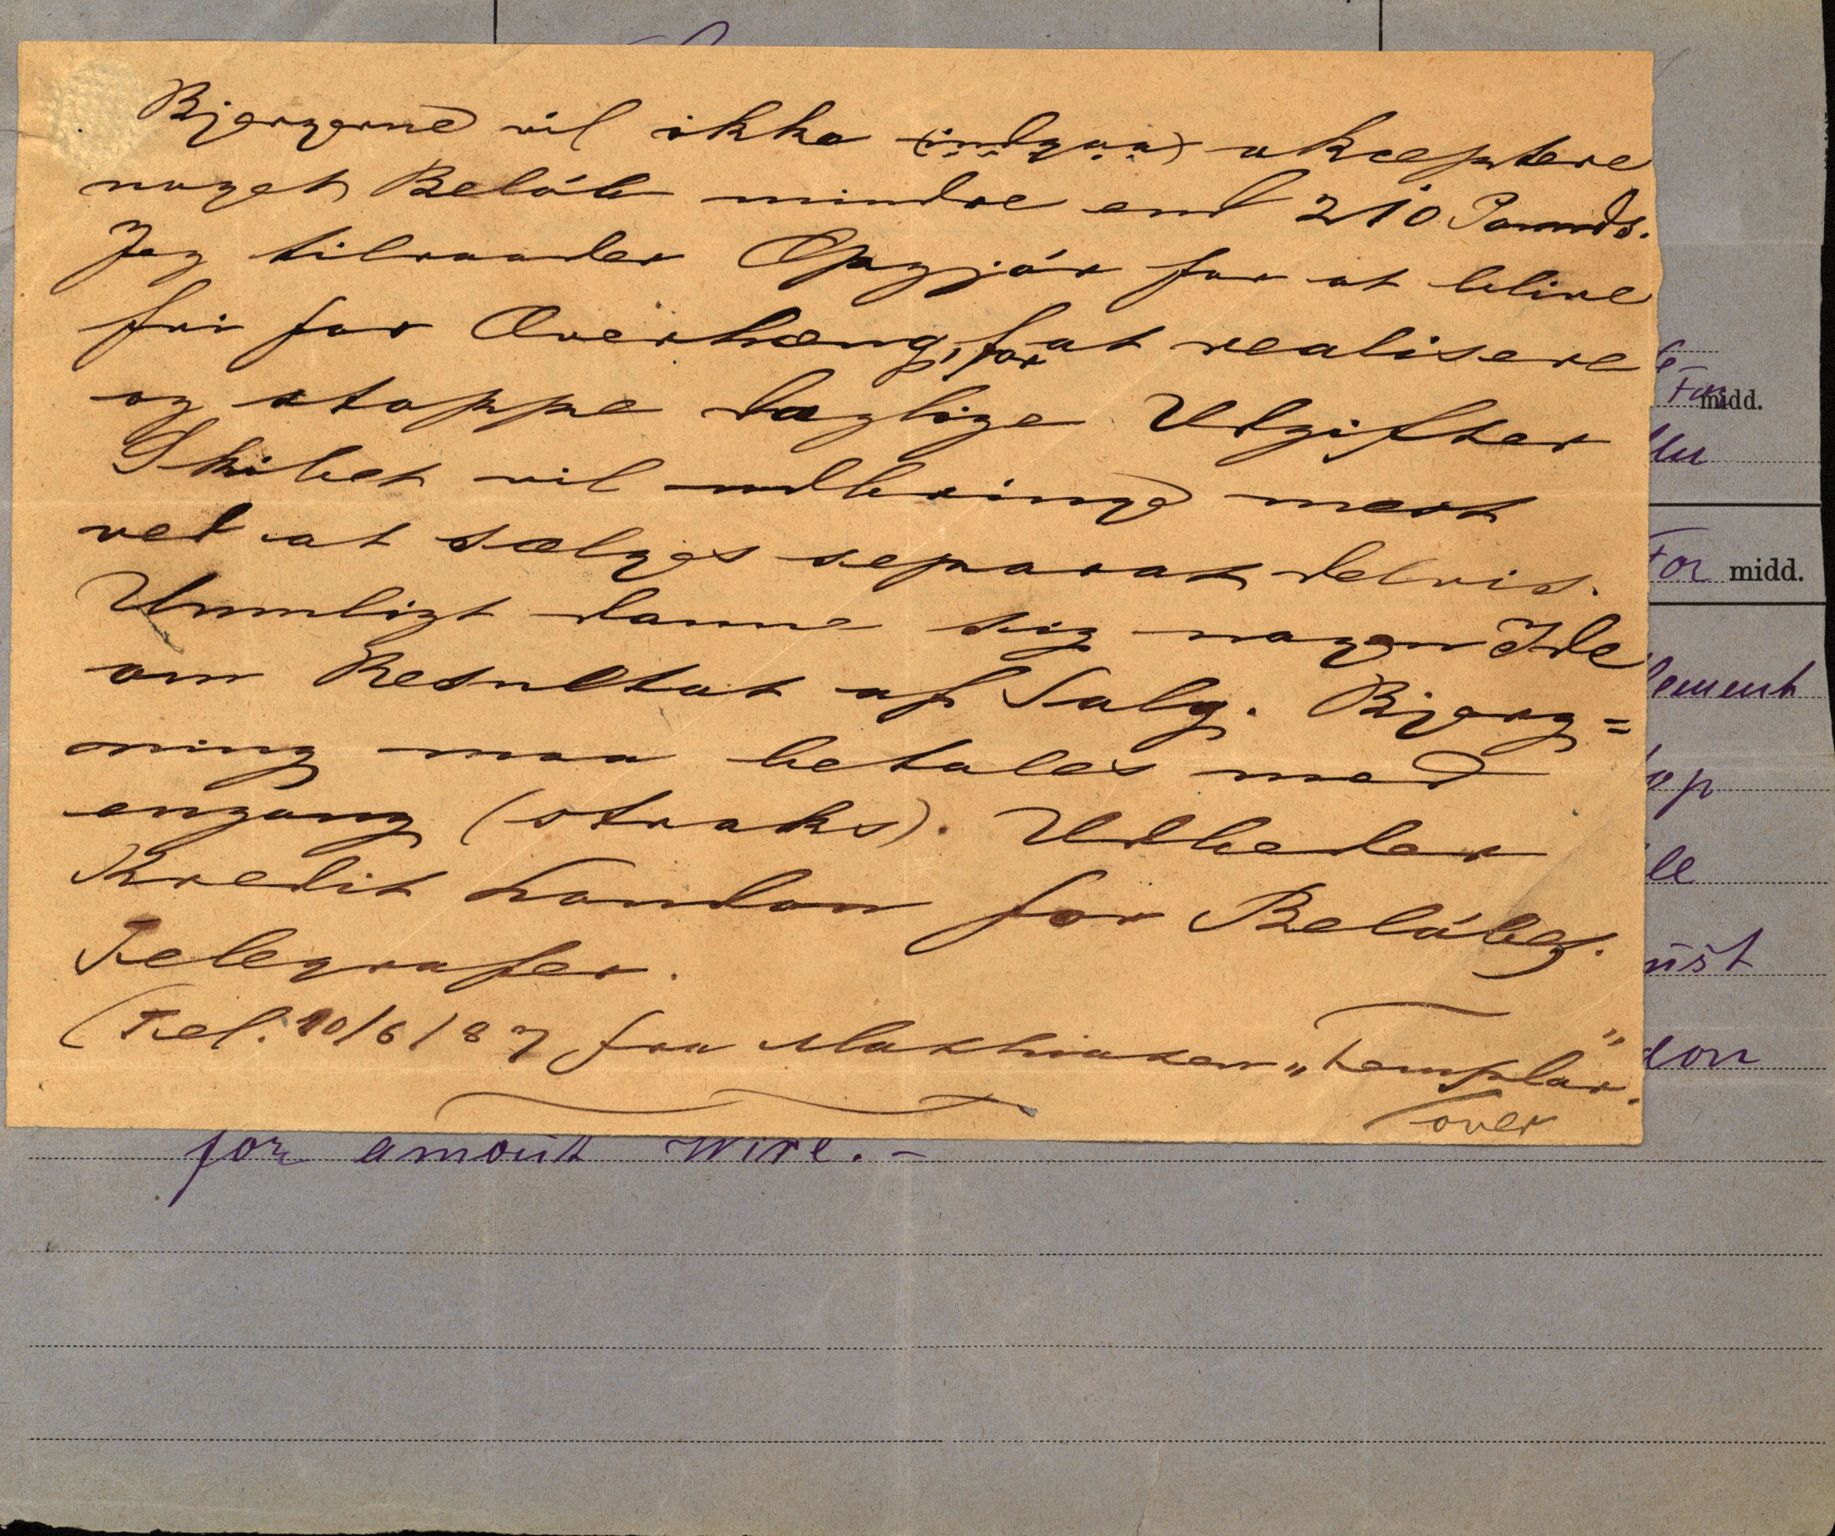 Bjergerne vil ikke (indgaa) akceptere
noget Beløb mindre end 210 Pounds.
Jeg tilraader Opgjør for at blive
fri for Overhæng, for at realisere
og stoppe daglige Udgifter
Skibet vil indbringe mest
ved at sælges separat delvis.
Umuligt danne sig nogen Ide
om Resultat af Salg. Bjerg=
ning maa betales med
engang (straks). Udbeder
Kredit London for Beløbet.
Telegrafer.
(Tel. 10/6/87 fra "Templar".
over
midd.
For midd.
for amount wire. -